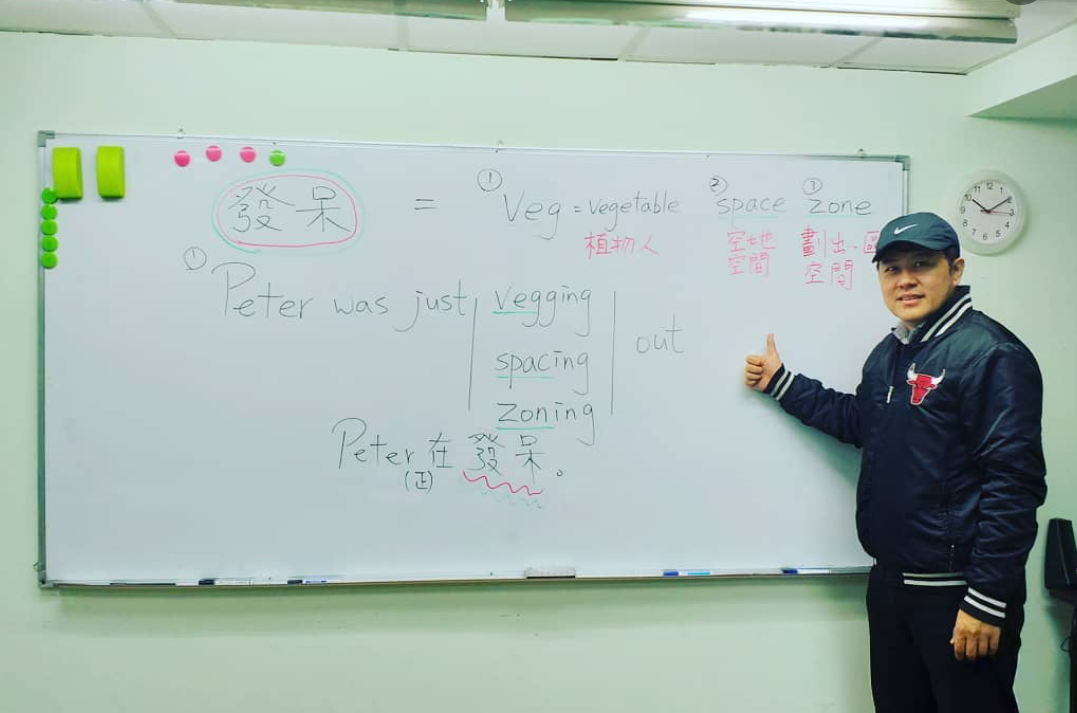 發呆 = ① Veg = vegetable ② space ③ zone
植物人 空地 劃出..區
空間 空間
① Peter was just vegging out
spacing
zoning
Peter在發呆。
(正)
12 1 2 3 4 5 6 7 8 9 10 11